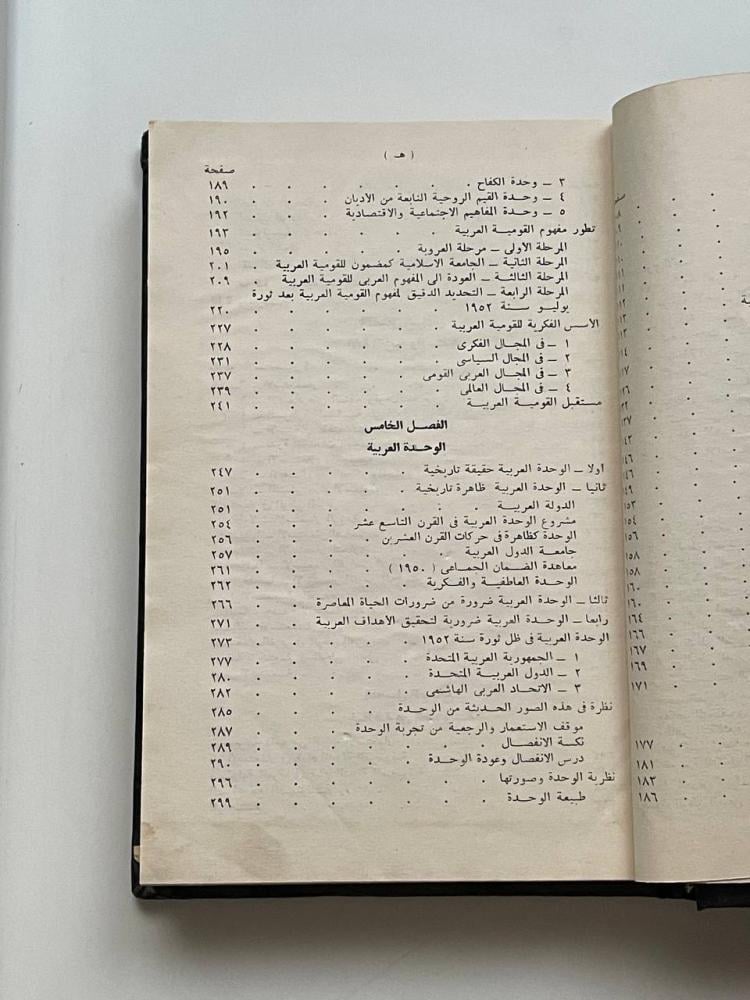 ( هـ )
صفحة
٣ ـ وحدة الكفاح . . . . . . . ١٨٩
٤ ـ وحدة القيم الروحية النابعة من الأديان . . . ١٩٠
٥ ـ وحدة المفاهيم الاجتماعية والاقتصادية . . . ١٩٢
تطور مفهوم القومية العربية . . . . . . ١٩٣
المرحلة الأولى ـ مرحلة العروبة . . . . . ١٩٥
المرحلة الثانية ـ الجامعة الاسلامية كمضمون للقومية العربية . ٢٠١
المرحلة الثالثة ـ العودة الى المفهوم العربى للقومية العربية . ٢٠٩
المرحلة الرابعة ـ التحديد الدقيق لمفهوم القومية العربية بعد ثورة
يوليو سنة ١٩٥٢ . . . . . . ٢٢٠
الأسس الفكرية للقومية العربية . . . . . ٢٢٧
١ ـ فى المجال الفكرى . . . . . . ٢٢٨
٢ ـ فى المجال السياسى . . . . . . ٢٣١
٣ ـ فى المجال العربى القومى . . . . . ٢٣٧
٤ ـ فى المجال العالمى . . . . . . ٢٣٩
مستقبل القومية العربية . . . . . . ٢٤١
الفصل الخامس
الوحدة العربية
أولا ـ الوحدة العربية حقيقة تاريخية . . . . ٢٤٧
ثانيا ـ الوحدة العربية ظاهرة تاريخية . . . . ٢٥١
الدولة العربية . . . . . . ٢٥١
مشروع الوحدة العربية فى القرن التاسع عشر . . . ٢٥٤
الوحدة كظاهرة فى حركات القرن العشرين . . . ٢٥٦
جامعة الدول العربية . . . . . . ٢٥٧
معاهدة الضمان الجماعى ( ١٩٥٠ ) . . . . ٢٦١
الوحدة العاطفية والفكرية . . . . . ٢٦٢
ثالثا ـ الوحدة العربية ضرورة من ضرورات الحياة المعاصرة . . ٢٦٦
رابعا ـ الوحدة العربية ضرورية لتحقيق الأهداف العربية . . ٢٧١
الوحدة العربية فى ظل ثورة سنة ١٩٥٢ . . . . ٢٧٣
١ ـ الجمهورية العربية المتحدة . . . . . ٢٧٧
٢ ـ الدول العربية المتحدة . . . . . ٢٨٠
٣ ـ الاتحاد العربى الهاشمى . . . . . ٢٨٢
نظرة فى هذه الصور الحديثة من الوحدة . . . . ٢٨٥
موقف الاستعمار والرجعية من تجربة الوحدة . . . ٢٨٧
نكسة الانفصال . . . . . . ٢٨٩
درس الانفصال وعودة الوحدة . . . . . ٢٩٠
نظرية الوحدة وصورتها . . . . . . ٢٩٦
طبيعة الوحدة . . . . . . ٢٩٩
١٥٣
١٥٤
١٥٦
١٥٨
١٥٨
١٦٠
١٦٠
١٦٤
١٦٦
١٦٧
١٦٩
١٧١
١٧٧
١٨١
١٨٣
١٨٦